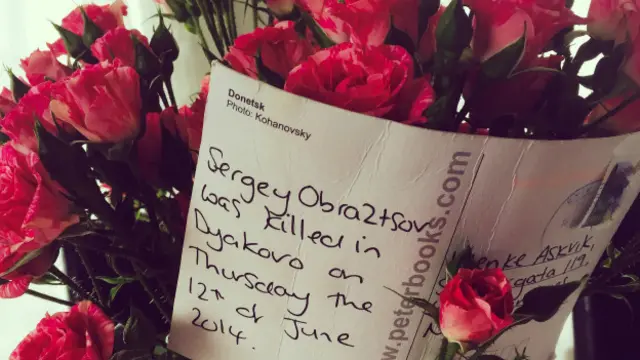 Donetsk
Photo: Kohanovsky
Sergey Obra2tsov
was killed in
Dyakovo on
Thursday the
12th of June
2014.
www.peterbooks.com
Askvik,
119,